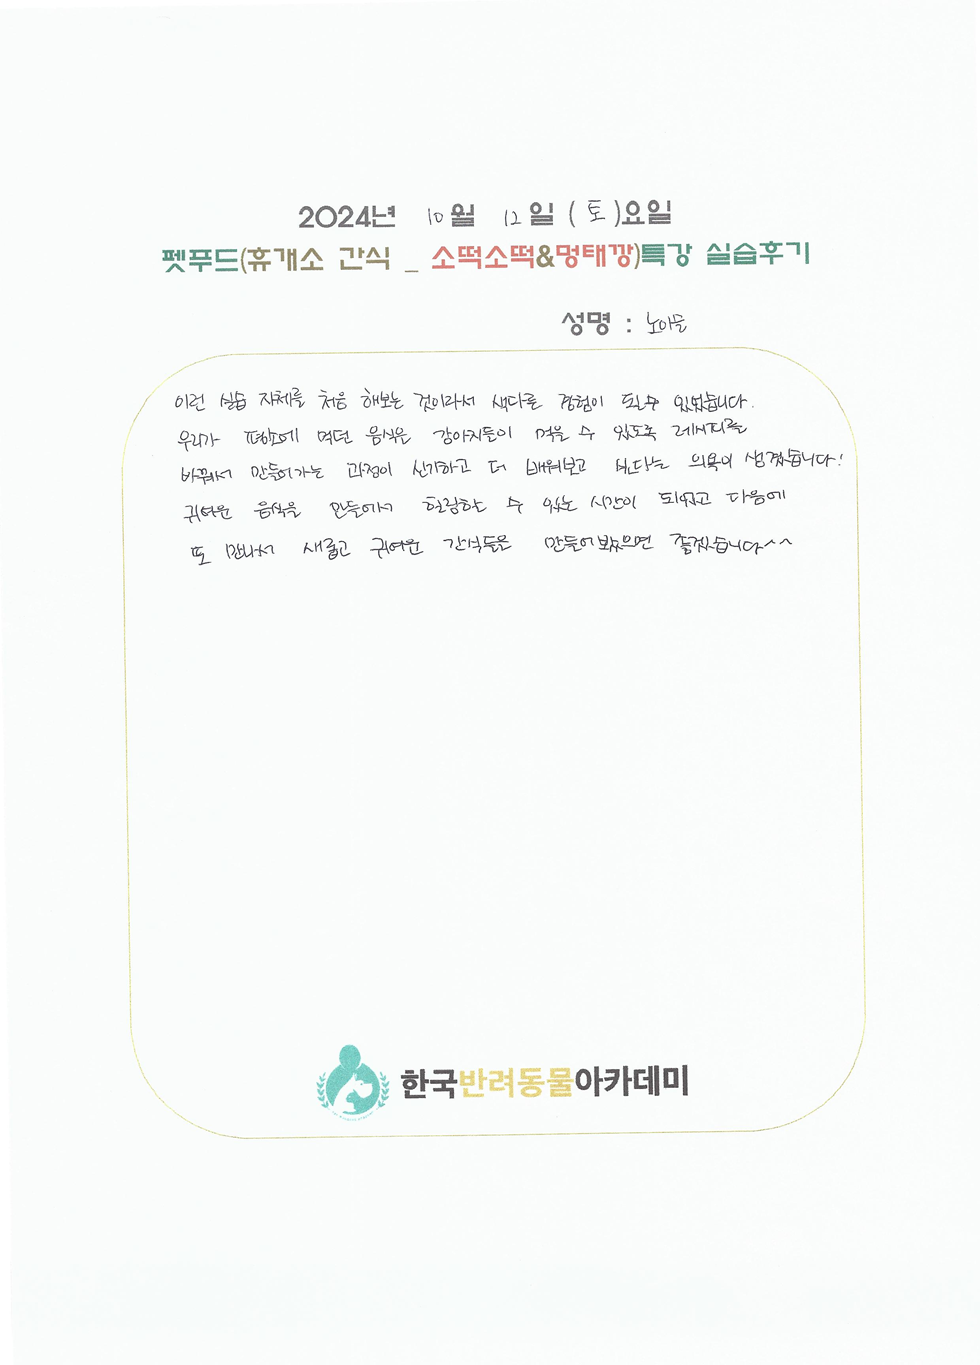 2024년 10월 12일 (토)요일
펫푸드(휴개소 간식 _ 소떡소떡&멍태깡)특강 실습후기
성명 : 노아름
이런 실습 자체를 처음 해보는 것이라서 색다른 경험이 될수 있었습니다.
우리가 평소에 먹던 음식은 강아지들이 먹을 수 있도록 레시피를
바꿔서 만들어가는 과정이 신기하고 더 배워보고 싶다는 의욕이 생겼습니다!
귀여운 음식을 만들어서 힐링할 수 있는 시간이 되었고 다음에
또 만나서 새롭고 귀여운 간식들을 만들어봤으면 좋겠습니다^^
한국반려동물아카데미